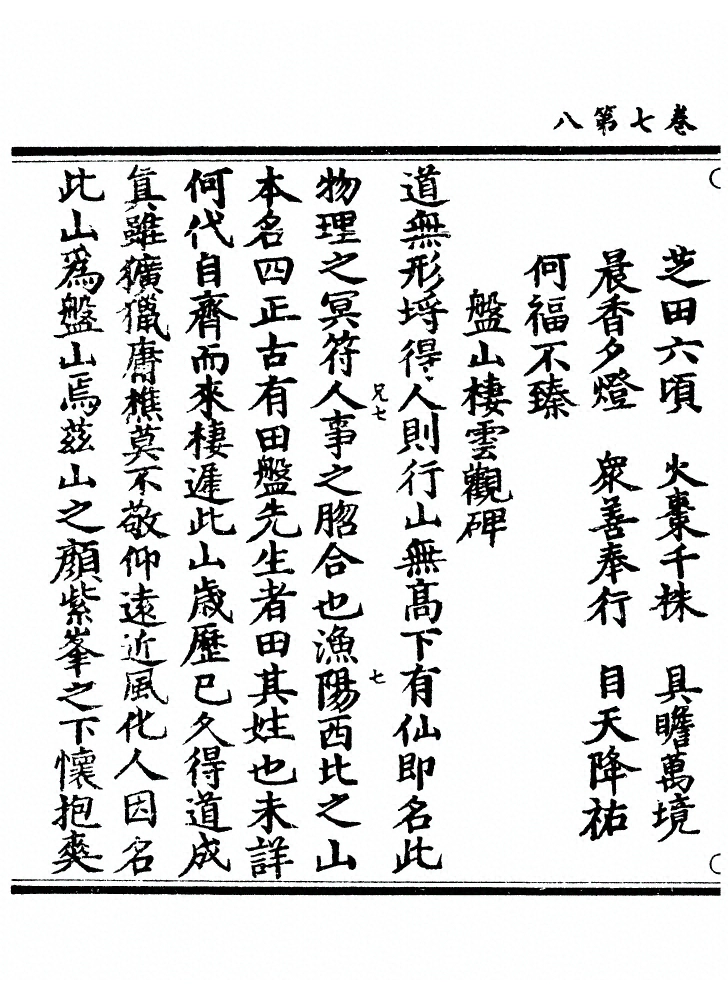 卷七第八
芝田六頃　火棗千株　具瞻萬境
晨香夕燈　衆善奉行　自天降祐
何福不臻
盤山棲雲觀碑
道無形埒得人則行山無高下有仙即名此
物理之冥符人事之脗合也漁陽西北之山
兄七
七
本名四正古有田盤先生者田其姓也未詳
何代自齊而來棲遲此山歲歷已久得道成
眞雖獷獵庸樵莫不敬仰遠近風化人因名
此山爲盤山焉茲山之顔紫峯之下懷抱爽